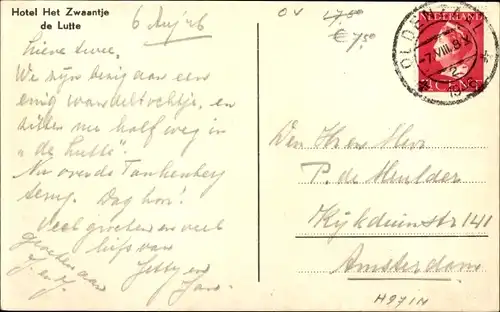 Hotel Het Zwaantje
de Lutte
6 Aug '46
Lieve twee,
We zijn bezig aan een
enig wandeltochtje, en
zitten nu half weg in
"de Lutte".
Nu over de Tankenberg
terug. Dag hoor!
Veel groeten en veel
liefs van
Jetty en
Jan.
Groeten aan
J. en J.
OV 17,50
€ 7,50
NEDERLAND
CENT
7.VIII.
Den Heer en Mevr
P. de Mulder
Kijkduinstr 141
Amsterdam
H971N